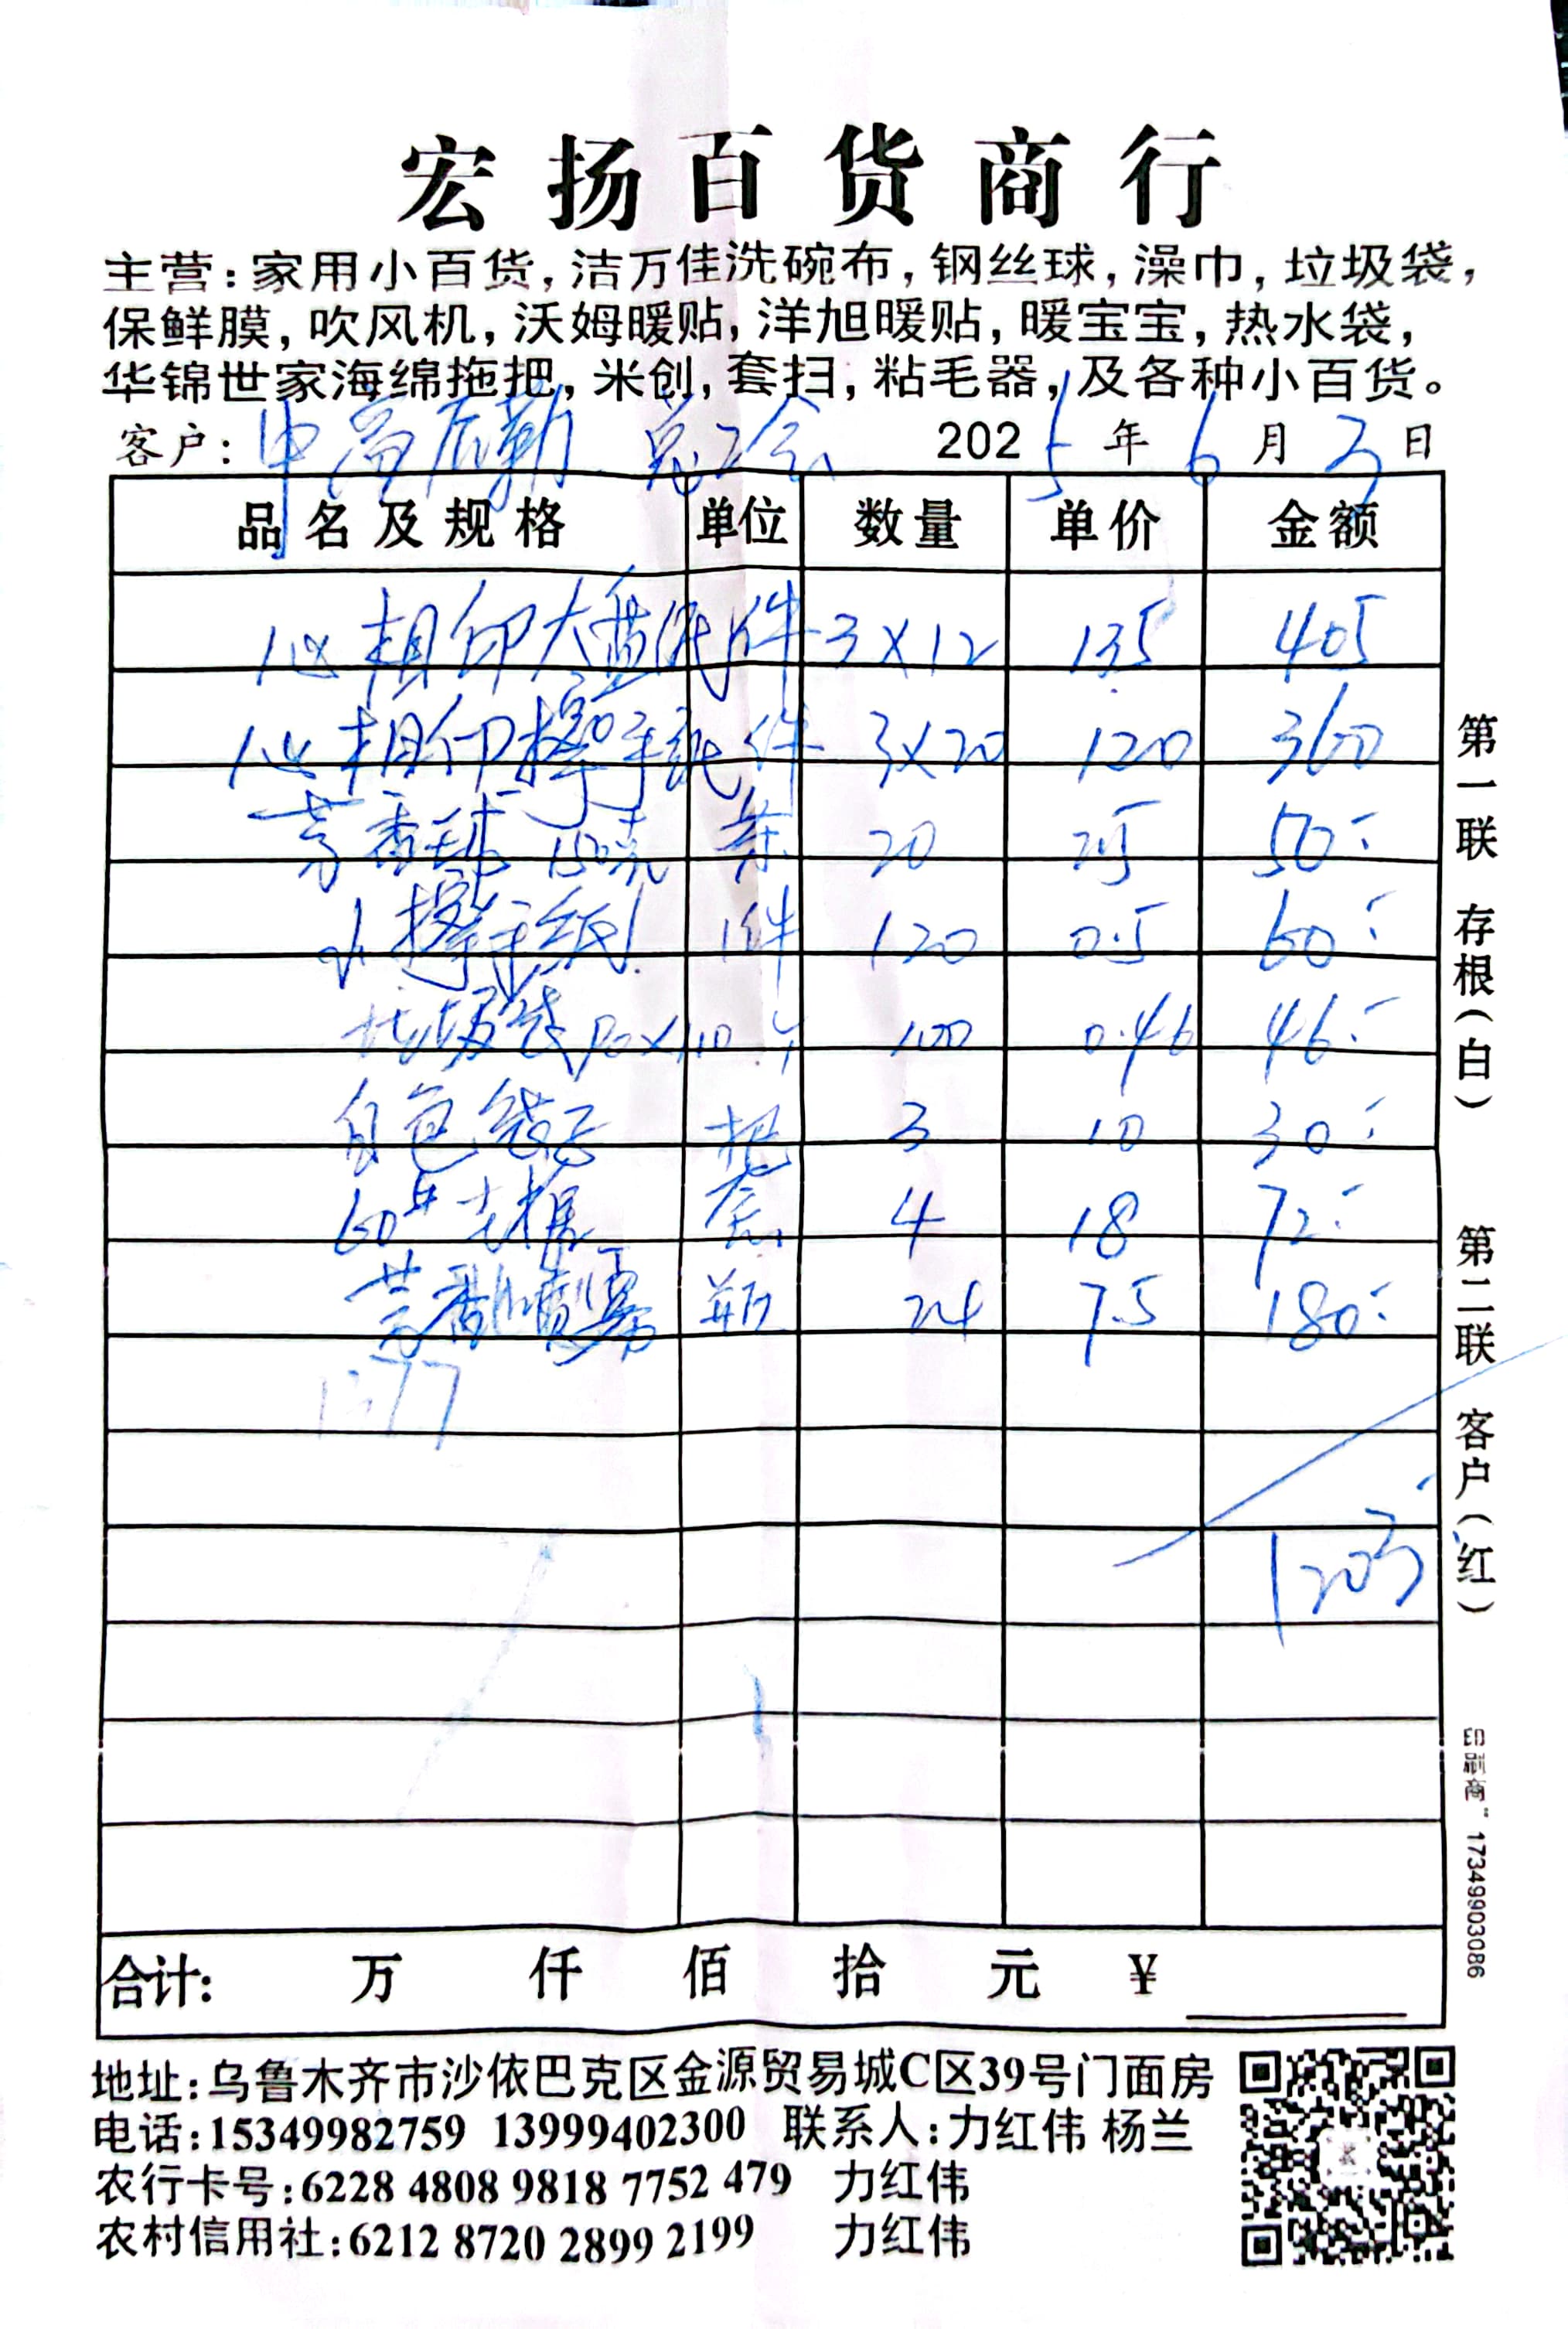 宏扬百货商行
主营:家用小百货,洁万佳洗碗布,钢丝球,澡巾,垃圾袋,
保鲜膜,吹风机,沃姆暖贴,洋旭暖贴,暖宝宝,热水袋,
华锦世家海绵拖把,米创,套扫,粘毛器,及各种小百货。
客户: 中 总工会 2025年6月3日
品名及规格 单位 数量 单价 金额
心相印大盘纸 件 3×12 135 405
心相印擦手纸 件 3×20 120 360
芳香球 袋 20 2.5 50
小擦手纸 件 120 0.5 60
垃圾袋 个 100 0.46 46
自色 把 3 10 30
60 4 18 72
芳香喷雾 瓶 24 7.5 180
1203
合计: 万 仟 佰 拾 元 ¥
地址:乌鲁木齐市沙依巴克区金源贸易城C区39号门面房
电话:15349982759 13999402300 联系人:力红伟 杨兰
农行卡号:6228 4808 9818 7752 479 力红伟
农村信用社:6212 8720 2899 2199 力红伟
第一联 存根(白) 第二联 客户(红)
印刷商:17349903086